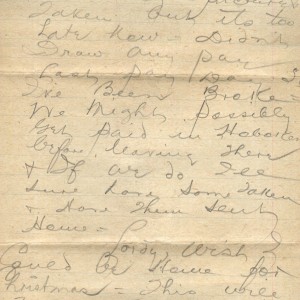 Taken, but its too
Late Now - Didn't
Draw any pay
Last pay Day So
I've Been Broke -
We Might Possibly
Get Paid in Hoboken
before leaving There
+ If we do I'll
sure have some Taken
+ Have Them Sent
Home -
Lordy, Wish I
Could be Home for
Christmas - This will